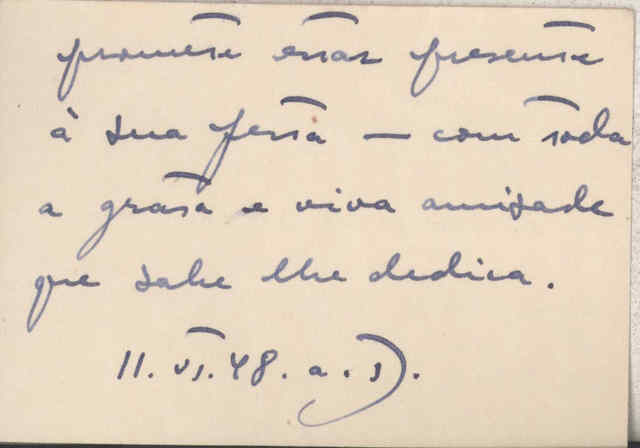 promete estar presente
à sua festa — com toda
a grata e viva amizade
que sabe lhe dedica.
11.VI.48. a.